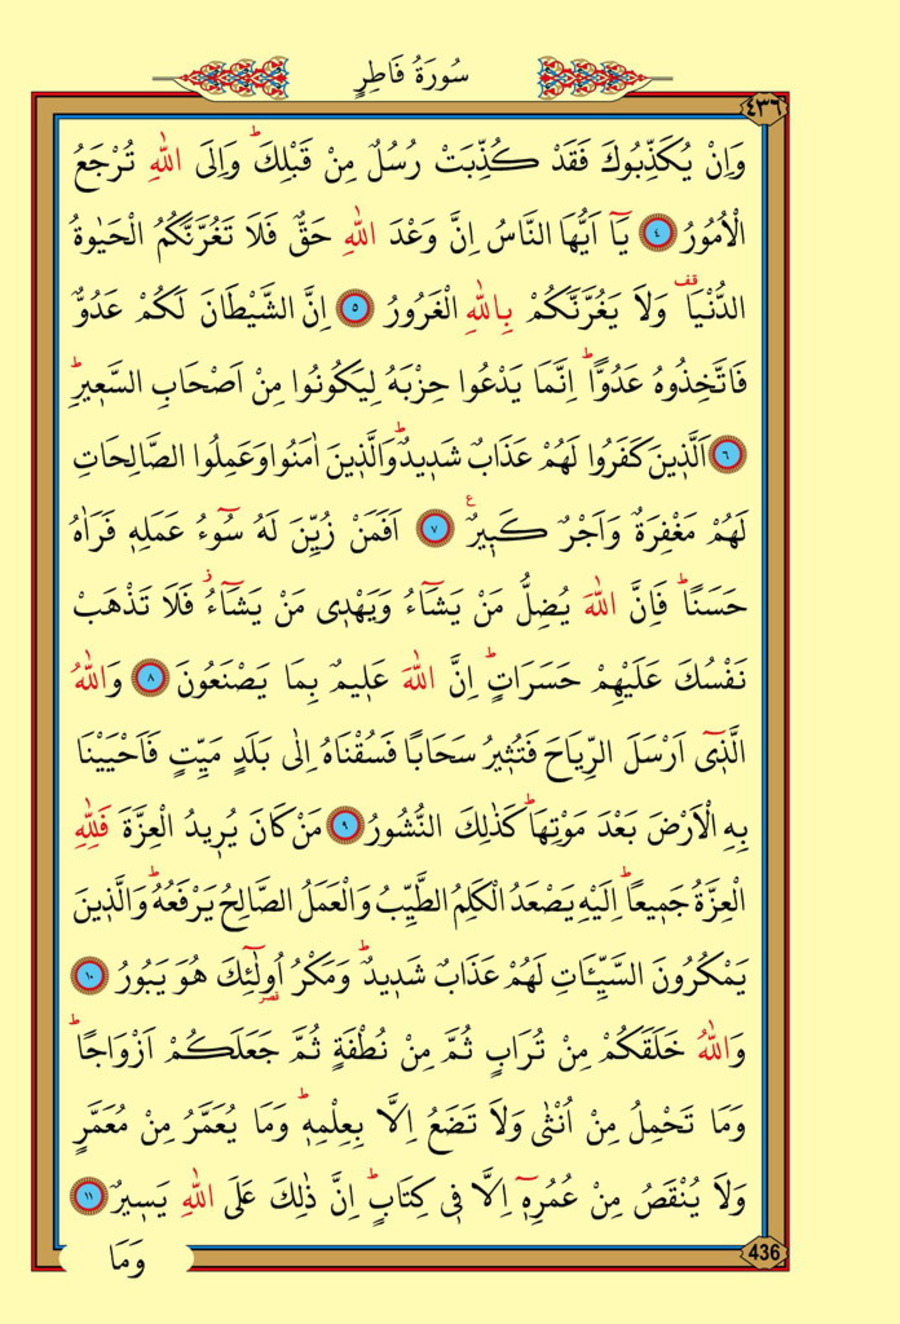 سُورَةُ فَاطِرٍ
٤٣٦
وَاِنْ يُكَذِّبُوكَ فَقَدْ كُذِّبَتْ رُسُلٌ مِنْ قَبْلِكَۜ وَاِلَى اللّٰهِ تُرْجَعُ
الْاُمُورُ ٤ يَٓا اَيُّهَا النَّاسُ اِنَّ وَعْدَ اللّٰهِ حَقٌّ فَلَا تَغُرَّنَّكُمُ الْحَيٰوةُ
الدُّنْيَا۠ قف وَلَا يَغُرَّنَّكُمْ بِاللّٰهِ الْغَرُورُ ٥ اِنَّ الشَّيْطَانَ لَكُمْ عَدُوٌّ
فَاتَّخِذُوهُ عَدُوًّاۜ اِنَّمَا يَدْعُوا حِزْبَهُ لِيَكُونُوا مِنْ اَصْحَابِ السَّع۪يرِۜ
٦ اَلَّذ۪ينَ كَفَرُوا لَهُمْ عَذَابٌ شَد۪يدٌۜ وَالَّذ۪ينَ اٰمَنُوا وَعَمِلُوا الصَّالِحَاتِ
لَهُمْ مَغْفِرَةٌ وَاَجْرٌ كَب۪يرٌ ع ٧ اَفَمَنْ زُيِّنَ لَهُ سُٓوءُ عَمَلِه۪ فَرَاٰهُ
حَسَنًاۜ فَاِنَّ اللّٰهَ يُضِلُّ مَنْ يَشَٓاءُ وَيَهْد۪ي مَنْ يَشَٓاءُۘ فَلَا تَذْهَبْ
نَفْسُكَ عَلَيْهِمْ حَسَرَاتٍۜ اِنَّ اللّٰهَ عَل۪يمٌ بِمَا يَصْنَعُونَ ٨ وَاللّٰهُ
الَّذ۪ٓي اَرْسَلَ الرِّيَاحَ فَتُث۪يرُ سَحَابًا فَسُقْنَاهُ اِلٰى بَلَدٍ مَيِّتٍ فَاَحْيَيْنَا
بِهِ الْاَرْضَ بَعْدَ مَوْتِهَاۜ كَذٰلِكَ النُّشُورُ ٩ مَنْ كَانَ يُر۪يدُ الْعِزَّةَ فَلِلّٰهِ
الْعِزَّةُ جَم۪يعًاۜ اِلَيْهِ يَصْعَدُ الْكَلِمُ الطَّيِّبُ وَالْعَمَلُ الصَّالِحُ يَرْفَعُهُۜ وَالَّذ۪ينَ
يَمْكُرُونَ السَّيِّـَٔاتِ لَهُمْ عَذَابٌ شَد۪يدٌۜ وَمَكْرُ اُو۬لٰٓئِكَ هُوَ يَبُورُ ١٠
وَاللّٰهُ خَلَقَكُمْ مِنْ تُرَابٍ ثُمَّ مِنْ نُطْفَةٍ ثُمَّ جَعَلَكُمْ اَزْوَاجًاۜ
وَمَا تَحْمِلُ مِنْ اُنْثٰى وَلَا تَضَعُ اِلَّا بِعِلْمِه۪ۜ وَمَا يُعَمَّرُ مِنْ مُعَمَّرٍ
وَلَا يُنْقَصُ مِنْ عُمُرِه۪ٓ اِلَّا ف۪ي كِتَابٍۜ اِنَّ ذٰلِكَ عَلَى اللّٰهِ يَس۪يرٌ ١١
436
وَمَا